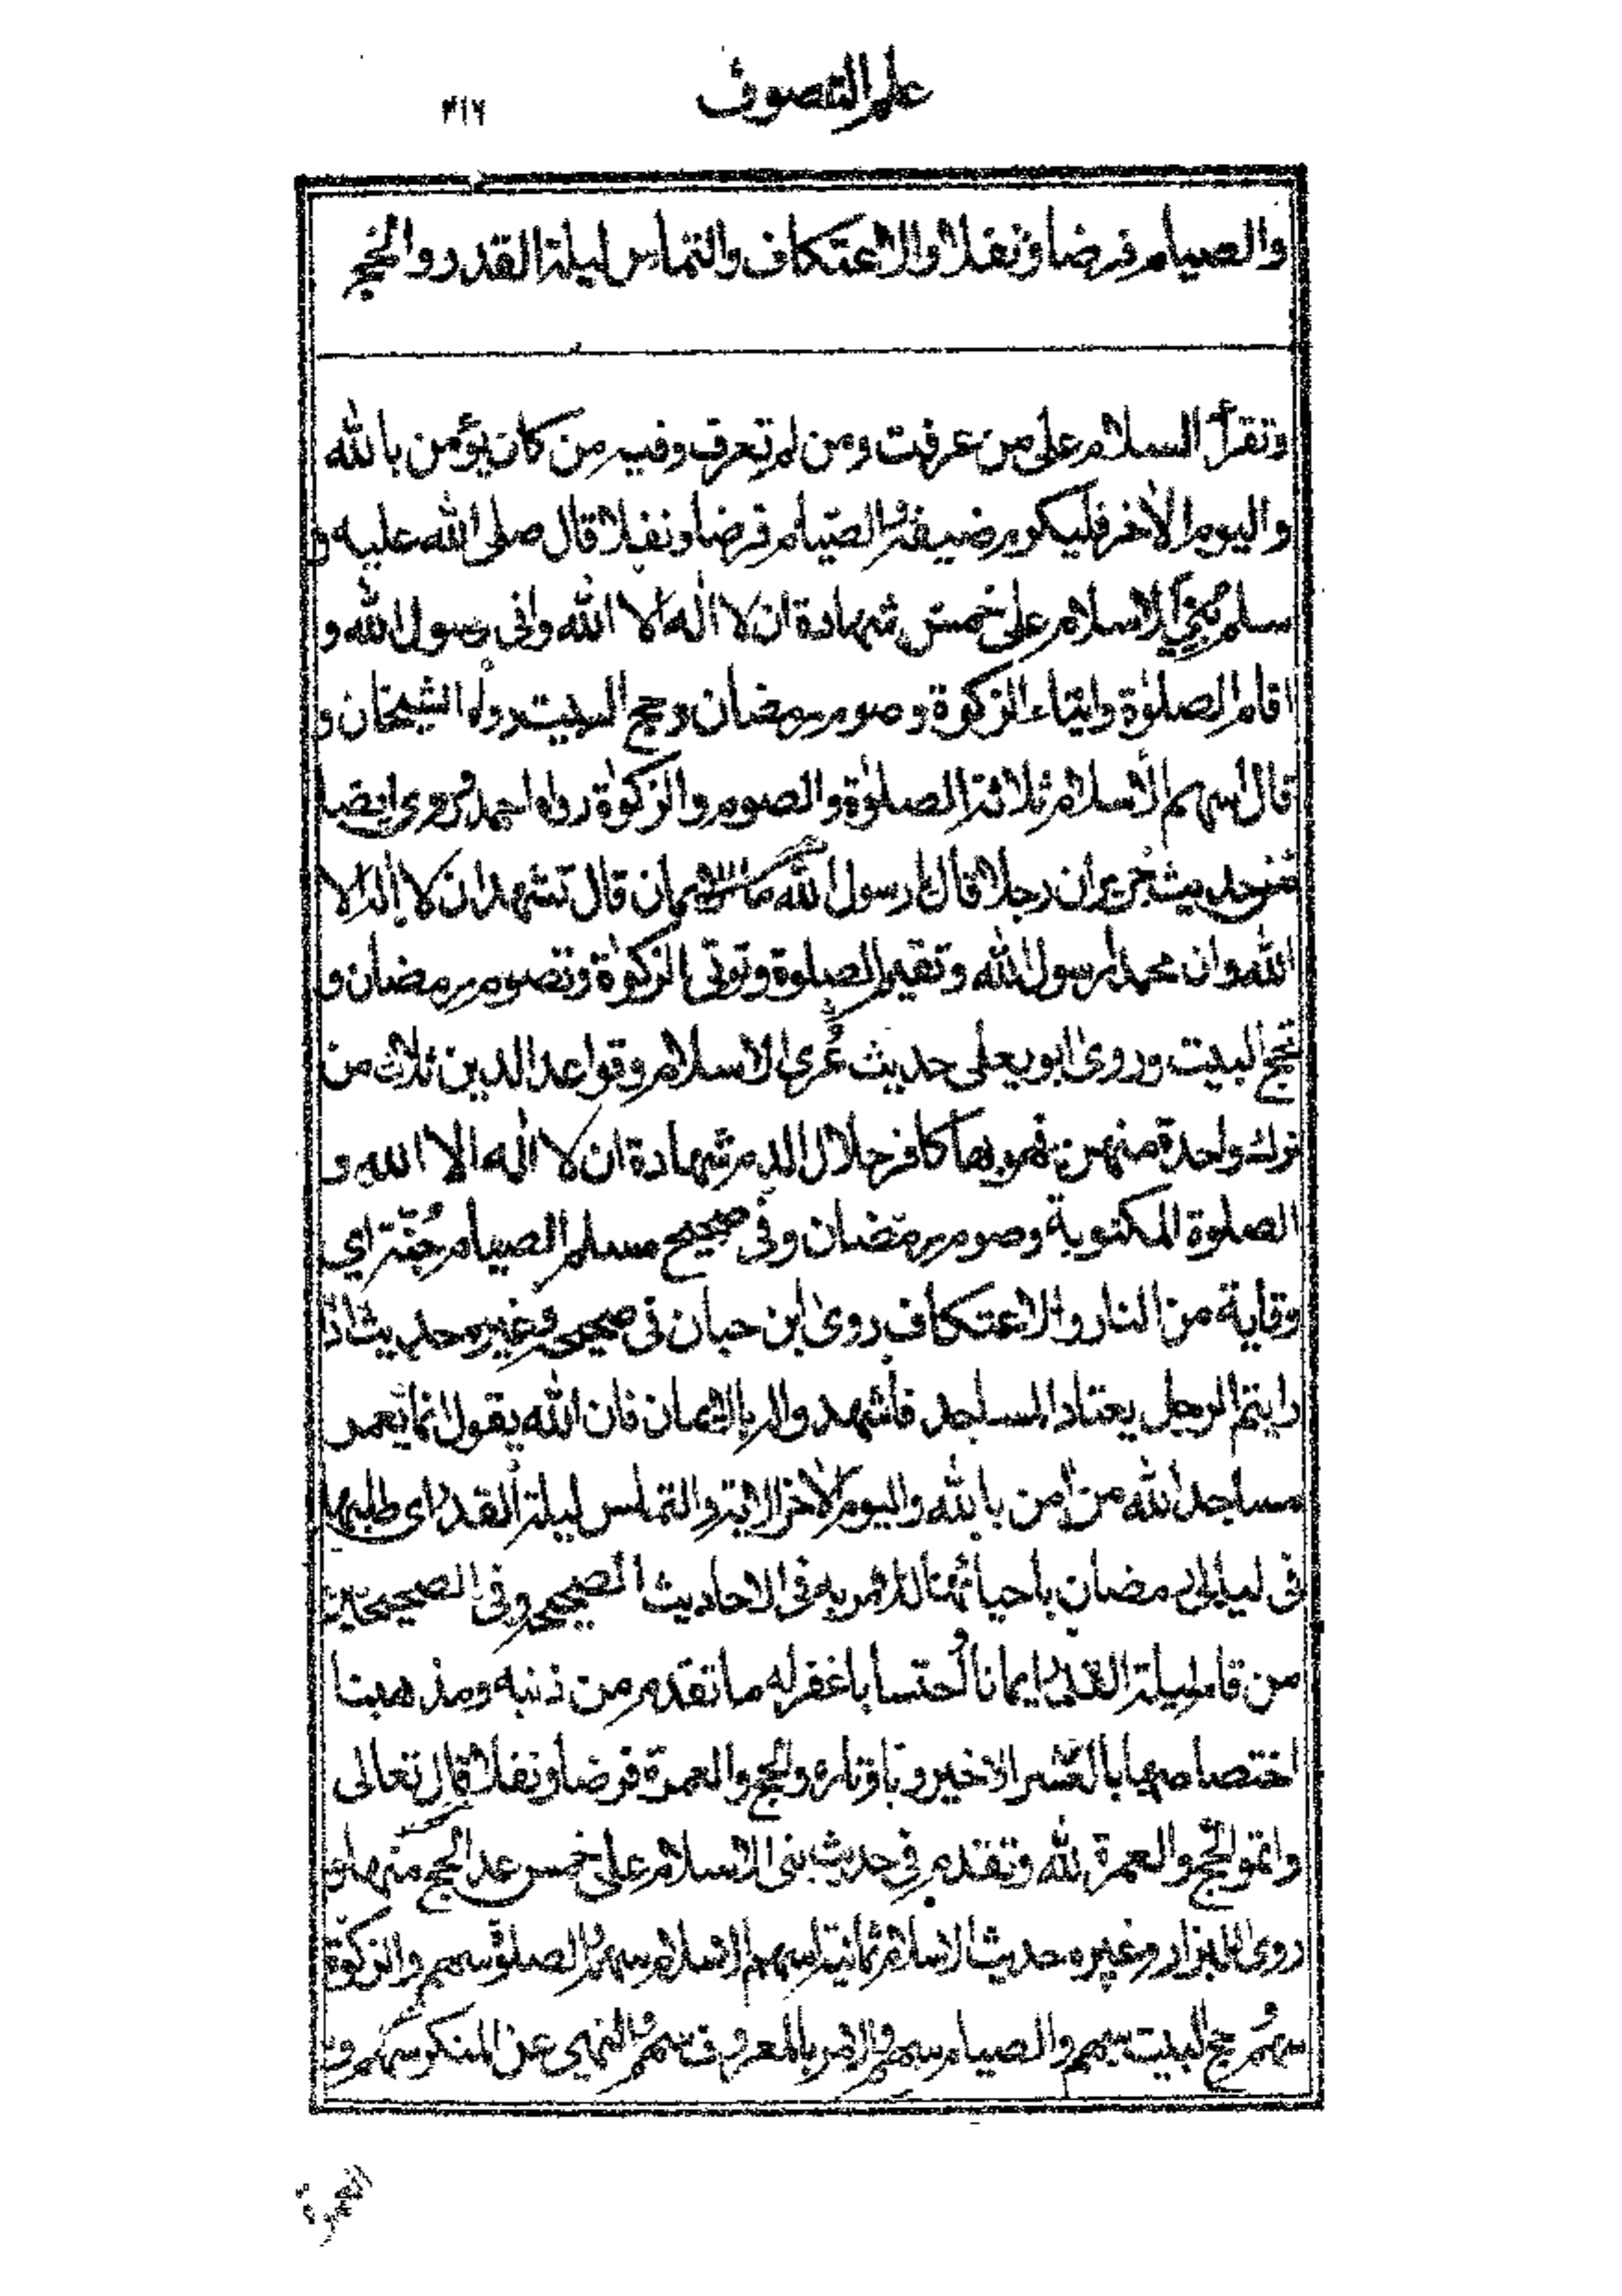 علم التصوف
٣١٦
والصيام فرضا ونفلا والاعتكاف والتماس ليلة القدر والحج
وتقرأ السلام على من عرفت ومن لم تعرف وفيه من كان يؤمن بالله
واليوم الاٰخر فليكرم ضيفه والصيام فرضا ونفلا قال صلى الله عليه و
سلم بُنِيَ الاسلام على خمس شهادة ان لا اله الا الله وانى رسول الله و
اقام الصلوٰة وايتاء الزكوة وصوم رمضان وحج البيت رواه الشيخان و
قال اسهم الاسلام ثلاثة الصلوٰة والصوم والزكوٰة رواه احمد وروى ايضا
حديث ان رجلا قال يا رسول الله ما الايمان قال تشهد ان لا اله الا
الله وان محمدا رسول الله وتقيم الصلوة وتوتى الزكوٰة وتصوم رمضان و
تحج البيت وروى ابو يعلى حديث عُرى الاسلام وقواعد الدين ثلاث من
ترك واحدة منهن فهو بها كافر حلال الدم شهادة ان لا اله الا الله و
الصلوة المكتوبة وصوم رمضان وفى صحيح مسلم الصيام جُنّة اي
وقاية من النار والاعتكاف روى ابن حبان فى صحيحه وغيره حديث اذا
رايتم الرجل يعتاد المساجد فأشهدوا له بالايمان فان الله يقول انما يعمر
مساجد الله من اٰمن بالله واليوم الاٰخر الاية والتماس ليلة القدر اى طلبها
فى ليالى رمضان باحيائها للامر به فى الاحاديث الصحيحة وفى الصحيحين
من قام ليلة القدر ايمانا واحتسابا غفر له ما تقدم من ذنبه ومذهبنا
اختصاصها بالعشر الاخير وباوتاره والحج والعمرة فرضا ونفلا قال تعالى
واتموا الحج والعمرة لله وتقدم في حديث بنى الاسلام على خمس عد الحج منها و
روى البزار وغيره حديث الاسلام ثمانية اسهم الاسلام سهم والصلوٰة سهم والزكوٰة
سهم وحج البيت سهم والصيام سهم والامر بالمعروف سهم والنهى عن المنكر سهم و
العمرة